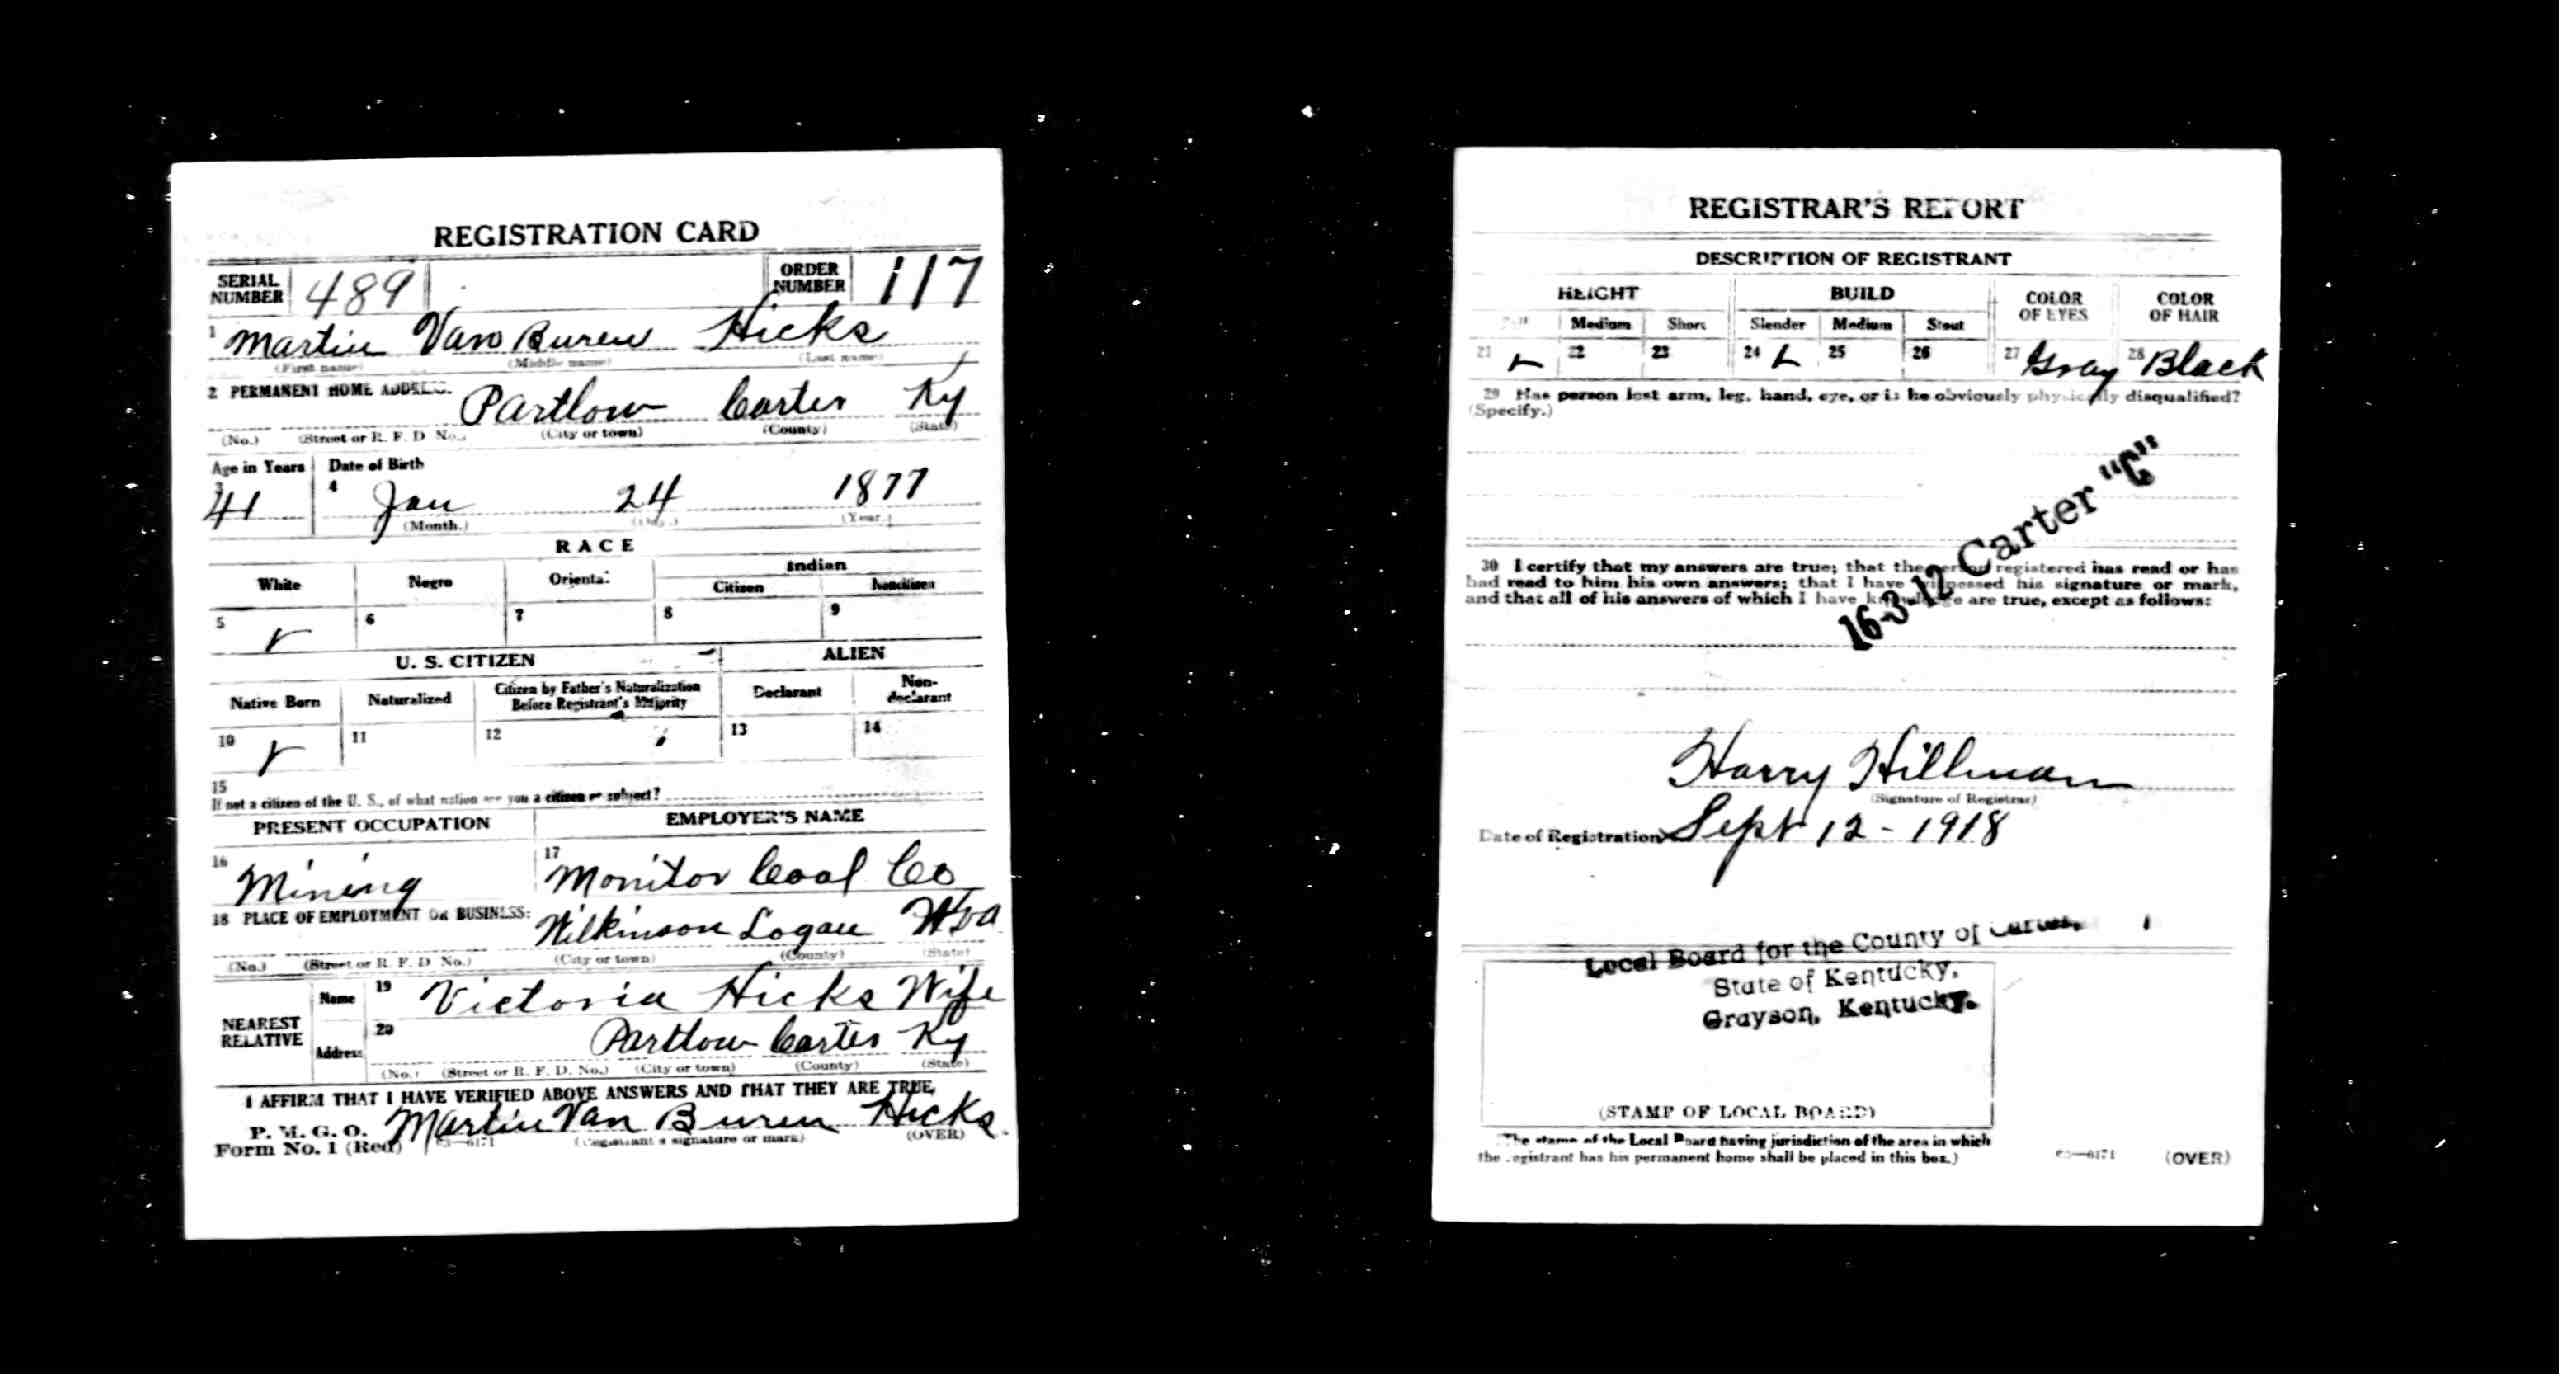 REGISTRATION CARD
SERIAL NUMBER 489 ORDER NUMBER 117
1 Martin Van Buren Hicks
(First name) (Middle name) (Last name)
2 PERMANENT HOME ADDRESS. Partlow Carter Ky
(No.) (Street or R. F. D No.) (City or town) (County) (State)
Age in Years Date of Birth
3 41 4 Jan 24 1877
(Month.) (Day.) (Year.)
RACE
White Negro Oriental Indian
Citizen Noncitizen
5 6 7 8 9
U. S. CITIZEN ALIEN
Native Born Naturalized Citizen by Father's Naturalization Before Registrant's Majority Declarant Non-declarant
10 11 12 13 14
15
If not a citizen of the U. S., of what nation are you a citizen or subject?
PRESENT OCCUPATION EMPLOYER'S NAME
16 Mining 17 Monitor Coal Co
18 PLACE OF EMPLOYMENT OR BUSINESS:
Wilkinson Logan WVa
(No.) (Street or R. F. D No.) (City or town) (County) (State)
NEAREST RELATIVE Name 19 Victoria Hicks Wife
Address 20 Partlow Carter Ky
(No.) (Street or R. F. D. No.) (City or town) (County) (State)
I AFFIRM THAT I HAVE VERIFIED ABOVE ANSWERS AND THAT THEY ARE TRUE.
P. M. G. O. Martin Van Buren Hicks
Form No. 1 (Red) 03—6171 (Registrant's signature or mark) (OVER)
REGISTRAR'S REPORT
DESCRIPTION OF REGISTRANT
HEIGHT BUILD COLOR OF EYES COLOR OF HAIR
Tall Medium Short Slender Medium Stout
21 22 23 24 25 26 27 Gray 28 Black
29 Has person lost arm, leg, hand, eye, or is he obviously physically disqualified?
(Specify.)
16-3-12 Carter "C"
30 I certify that my answers are true; that the person registered has read or has
had read to him his own answers; that I have witnessed his signature or mark,
and that all of his answers of which I have knowledge are true, except as follows:
Harry Hillman
(Signature of Registrar)
Date of Registration Sept 12 - 1918
Local Board for the County of Carter,
State of Kentucky,
Grayson, Kentucky.
(STAMP OF LOCAL BOARD)
(The stamp of the Local Board having jurisdiction of the area in which
the registrant has his permanent home shall be placed in this box.)
03—6171 (OVER)